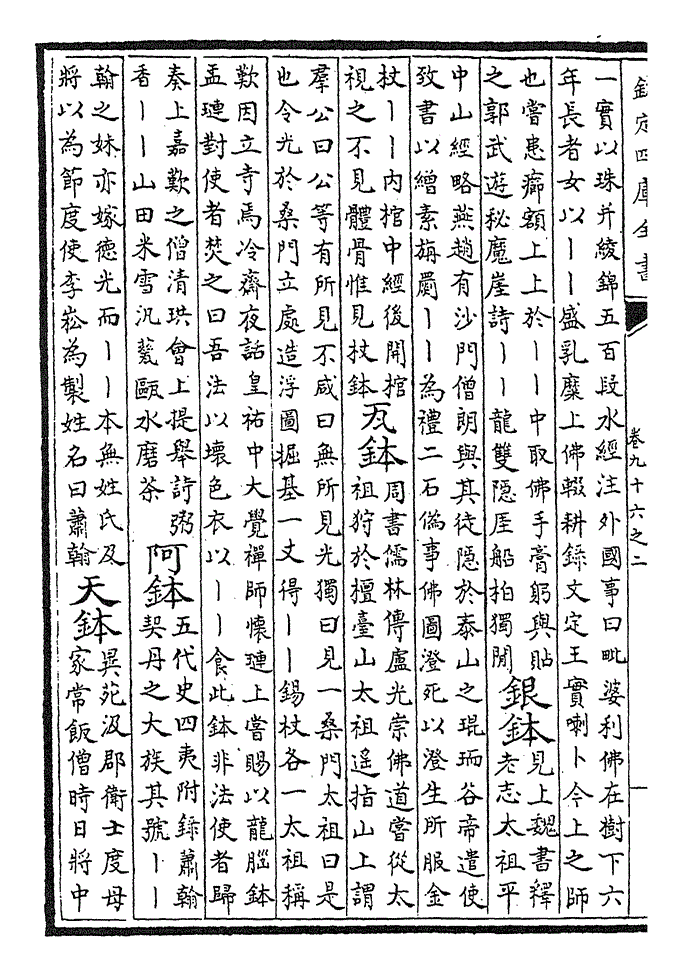 欽定四庫全書
卷九十六之二
一
一實以珠并綾錦五百段水經注外國事曰毗婆利佛在樹下六
年長者女以——盛乳糜上佛輟耕錄文定王實喇卜今上之師
也嘗患癤額上上於——中取佛手膏躬與貼
之郭武遊秘魔崖詩——龍雙隱厓船拍獨閒
銀鉢
見上魏書釋
老志太祖平
中山經略燕趙有沙門僧朗與其徒隱於泰山之琨㻏谷帝遣使
致書以繒素旃罽——為禮二石偽事佛圖澄死以澄生所服金
杖——內棺中經後開棺
視之不見體骨惟見杖鉢
瓦鉢
周書儒林傳盧光崇佛道嘗從太
祖狩於擅臺山太祖遙指山上謂
羣公曰公等有所見不咸曰無所見光獨曰見一桑門太祖曰是
也令光於桑門立處造浮圖掘基一丈得——錫杖各一太祖稱
歎因立寺焉冷齋夜話皇祐中大覺禪師懷璉上嘗賜以龍腦鉢
盂璉對使者焚之曰吾法以壞色衣以——食此鉢非法使者歸
奏上嘉歎之僧清珙會上提舉詩弼
香——山田米雪汎甆甌水磨茶
阿鉢
五代史四夷附錄蕭翰
契丹之大族其號——
翰之妹亦嫁德光而——本無姓氏及
將以為節度使李崧為製姓名曰蕭翰
天鉢
異苑汲郡衛士度母
家常飯僧時日將中